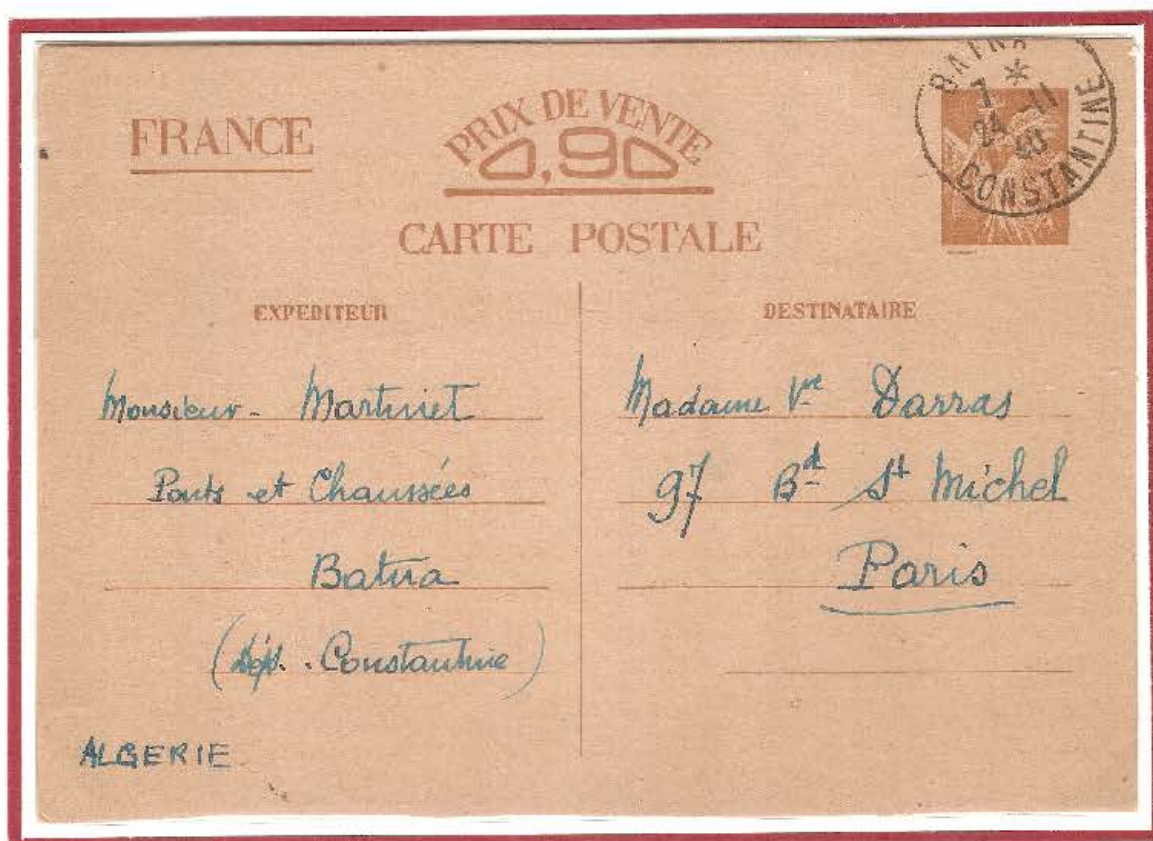 FRANCE
PRIX DE VENTE
0,90
CARTE POSTALE
BATNA
7 * 
24 -11
40
CONSTANTINE
EXPEDITEUR
Monsieur - Martinet
Ponts et Chaussées
Batna
(Dép. Constantine)
ALGERIE
DESTINATAIRE
Madame Vve Darras
97 Bd St Michel
Paris